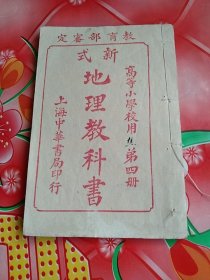 教育部審定
新式
地理教科書
高等小學校用
第四册
上海中華書局印行